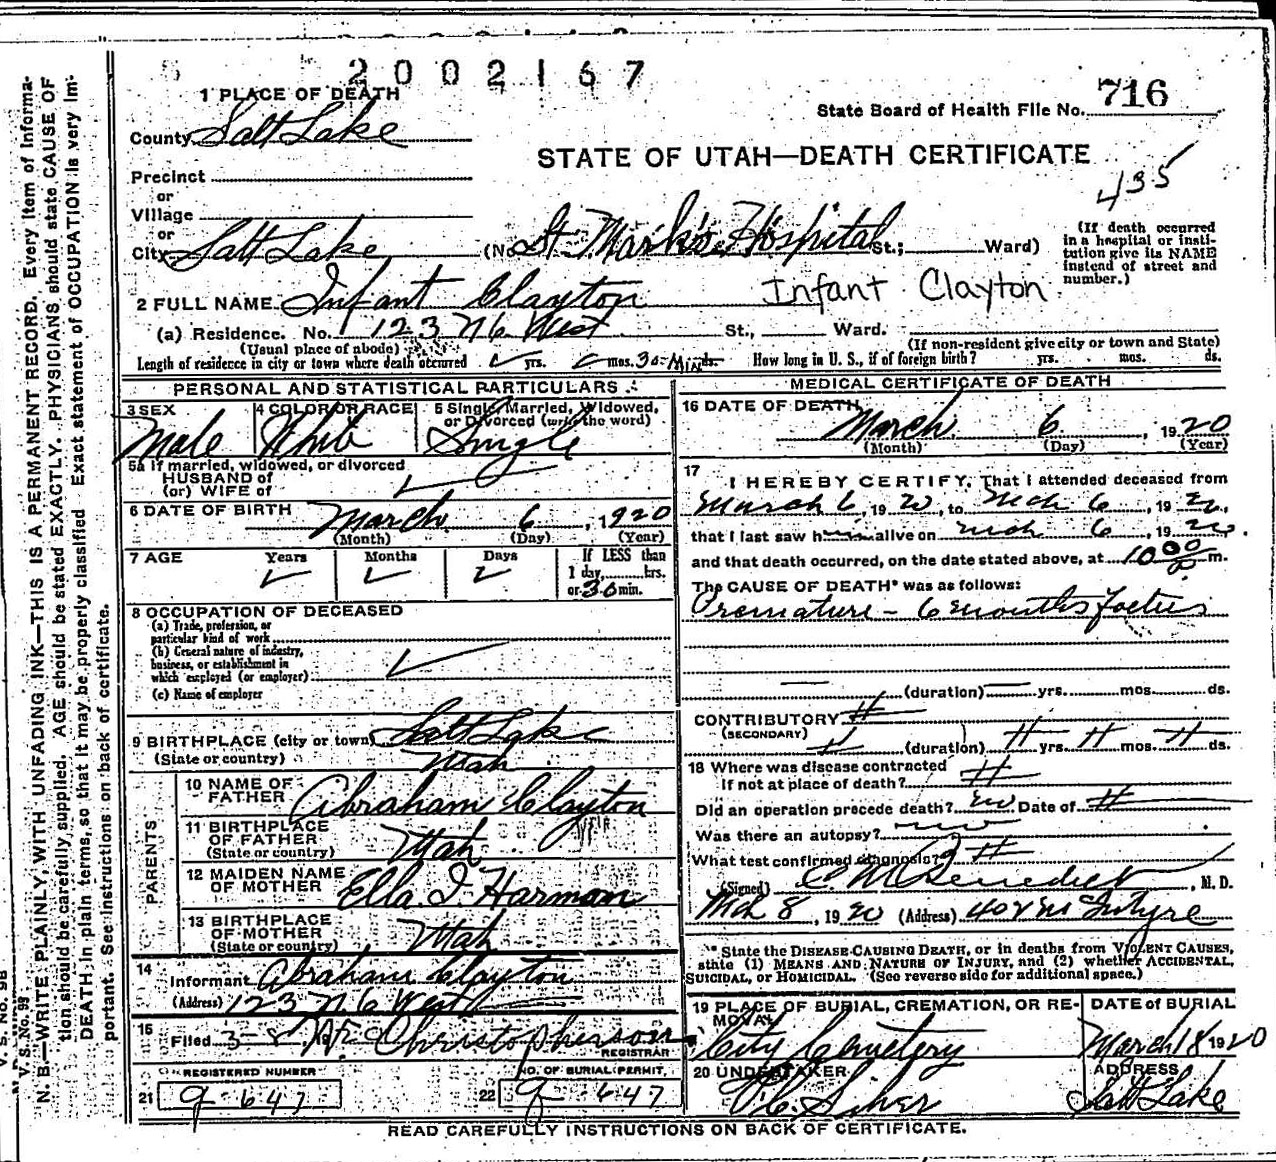 2002167
1 PLACE OF DEATH
State Board of Health File No. 716
County Salt Lake
STATE OF UTAH—DEATH CERTIFICATE
435
Precinct
or
Village
or
City Salt Lake (No. St. Mark's Hospital St.; Ward)
(If death occurred in a hospital or insti-
tution give its NAME
instead of street and
number.)
2 FULL NAME Infant Clayton Infant Clayton
(a) Residence. No. 123 N 6 West St., Ward.
(Usual place of abode) (If non-resident give city or town and State)
Length of residence in city or town where death occurred yrs. mos. 30 Min ds. How long in U. S., if of foreign birth? yrs. mos. ds.
PERSONAL AND STATISTICAL PARTICULARS
3 SEX Male
4 COLOR OR RACE White
5 Single, Married, Widowed,
or Divorced (write the word)
Single
5a If married, widowed, or divorced
HUSBAND of
(or) WIFE of
6 DATE OF BIRTH March 6, 1920
(Month) (Day) (Year)
7 AGE Years Months Days
If LESS than
1 day, hrs.
or 30 min.
8 OCCUPATION OF DECEASED
(a) Trade, profession, or
particular kind of work
(b) General nature of industry,
business, or establishment in
which employed (or employer)
(c) Name of employer
9 BIRTHPLACE (city or town) Salt Lake
(State or country) Utah
PARENTS
10 NAME OF
FATHER Abraham Clayton
11 BIRTHPLACE
OF FATHER
(State or country) Utah
12 MAIDEN NAME
OF MOTHER Ella I. Harmon
13 BIRTHPLACE
OF MOTHER
(State or country) Utah
14
Informant Abraham Clayton
(Address) 123 N. 6 West
15
Filed 3-8 19 Christopherson
REGISTRAR
REGISTERED NUMBER
21 9-647
NO. OF BURIAL PERMIT
22 9-647
MEDICAL CERTIFICATE OF DEATH
16 DATE OF DEATH
March 6, 1920
(Month) (Day) (Year)
17
I HEREBY CERTIFY, That I attended deceased from
March 6, 1920, to Mch 6, 1920,
that I last saw him alive on Mch 6, 1920
and that death occurred, on the date stated above, at 10 00 P m.
The CAUSE OF DEATH* was as follows:
Premature - 6 months foetus
(duration) yrs. mos. ds.
CONTRIBUTORY
(SECONDARY)
(duration) yrs. mos. ds.
18 Where was disease contracted
If not at place of death?
Did an operation precede death? no Date of
Was there an autopsy? no
What test confirmed diagnosis?
(Signed) C M Benedict, M. D.
Mch 8, 1920 (Address) 402 McIntyre
*State the DISEASE CAUSING DEATH, or in deaths from VIOLENT CAUSES,
state (1) MEANS AND NATURE OF INJURY, and (2) whether ACCIDENTAL,
SUICIDAL, or HOMICIDAL. (See reverse side for additional space.)
19 PLACE OF BURIAL, CREMATION, OR RE-
MOVAL
City Cemetery
DATE of BURIAL
March 18 1920
20 UNDERTAKER
ADDRESS
Salt Lake
READ CAREFULLY INSTRUCTIONS ON BACK OF CERTIFICATE.
V. S. No. 99
N. B.—WRITE PLAINLY, WITH UNFADING INK—THIS IS A PERMANENT RECORD. Every item of informa-
tion should be carefully supplied. AGE should be stated EXACTLY. PHYSICIANS should state CAUSE OF
DEATH in plain terms, so that it may be properly classified. Exact statement of OCCUPATION is very im-
portant. See instructions on back of certificate.